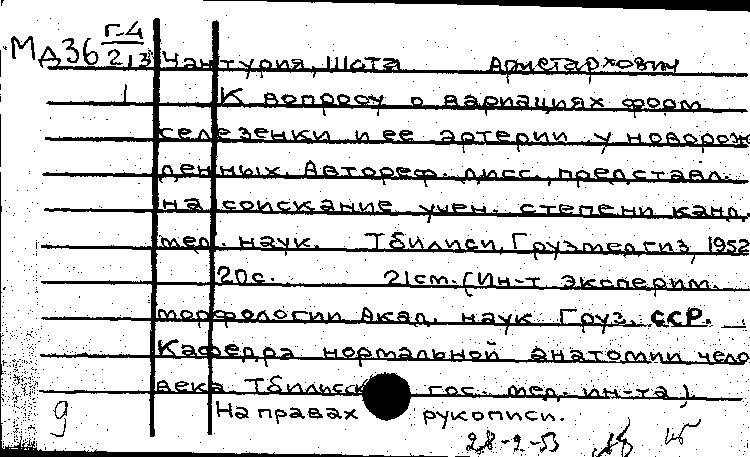 МД36 Г-4/213 Чантурия, Шота Аристархович
1 К вопросу о вариациях форм
селезенки и ее артерии у новорож
денных. Автореф. дисс., представл.
на соискание учен. степени канд.
мед. наук. Тбилиси, Грузмедгиз, 1952
20с. 21см. (Ин-т эксперим.
морфологии Акад. наук Груз. ССР.
Кафедра нормальной анатомии чело
века Тбилисск гос. мед. ин-та)
9 На правах рукописи.
28-2-53